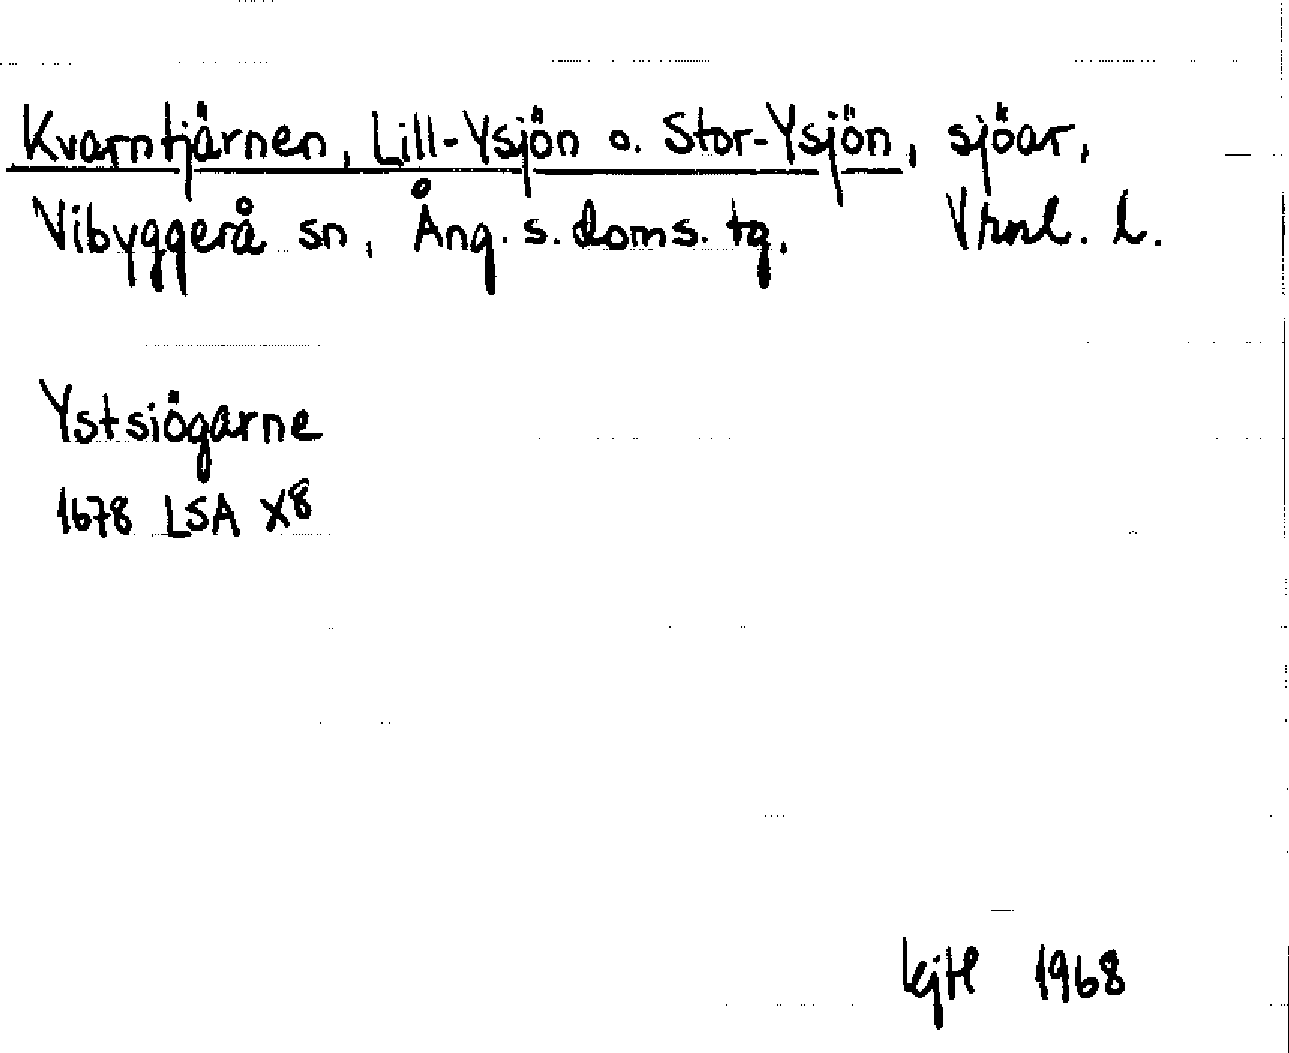 Kvarntjärnen, Lill-Ysjön o. Stor-Ysjön, sjöar,
Vibyggerå sn, Ång. s. doms. tg. Vrnl. l.
Ystsiögarne
1678 LSA X8
kjH 1968